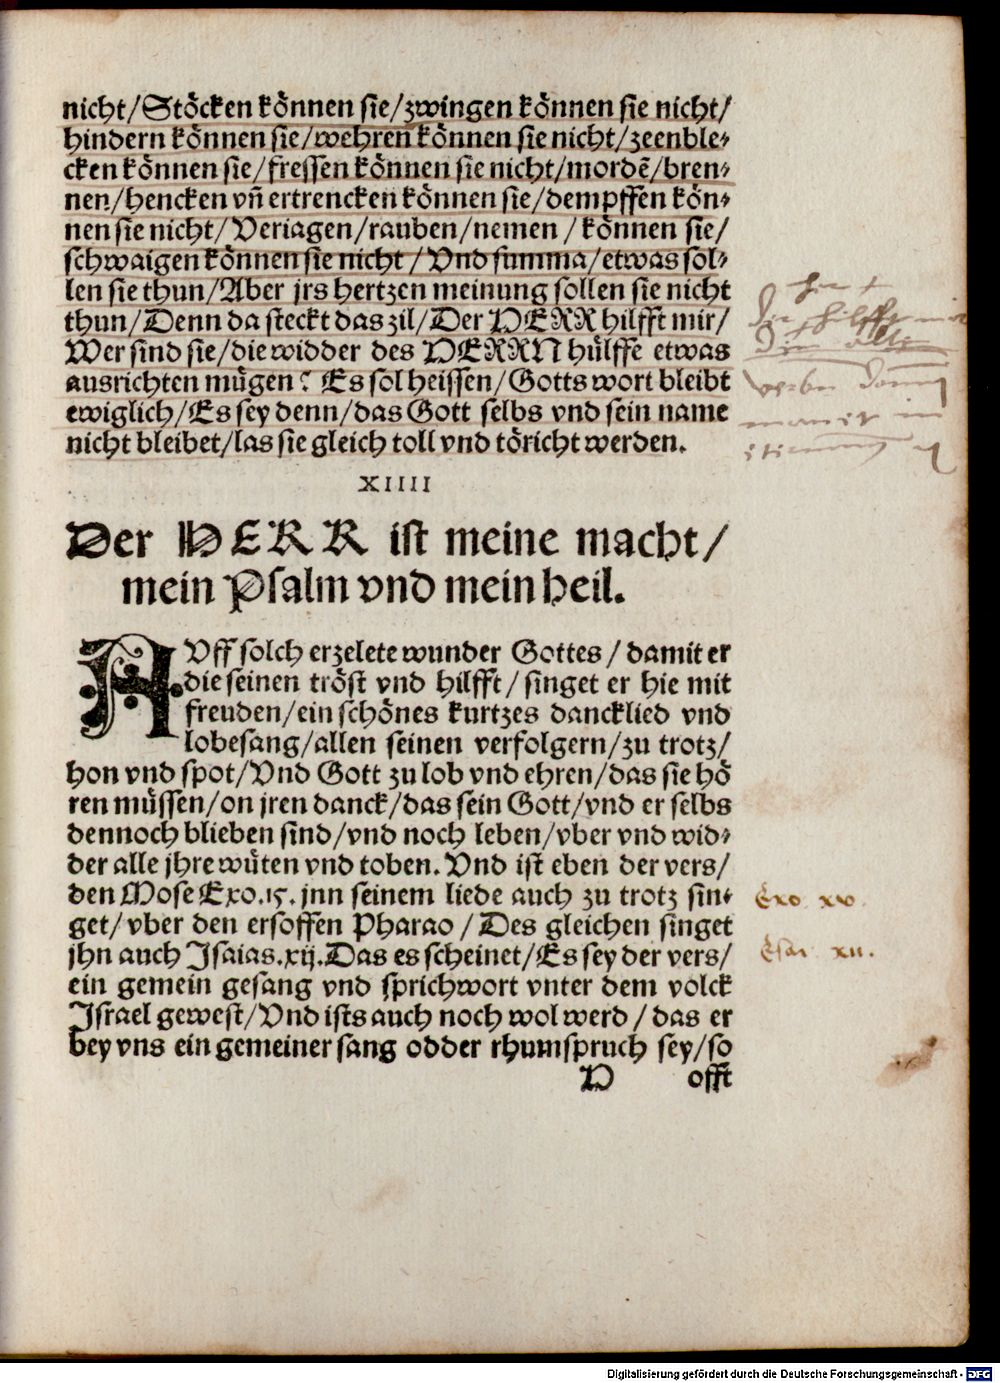 nicht/Stöcken können sie/zwingen können sie nicht/
hindern können sie/wehren können sie nicht/zeenble⸗
cken können sie/fressen können sie nicht/mordẽ/bren⸗
nen/hencken vñ ertrencken können sie/dempffen kön⸗
nen sie nicht/Veriagen/rauben/nemen/können sie/
schwaigen können sie nicht/Vnd summa/etwas sol⸗
len sie thun/Aber jrs hertzen meinung sollen sie nicht
thun/Denn da steckt das zil/Der HERR hilfft mir/
Wer sind sie/die widder des HERRN hülffe etwas
ausrichten mügen? Es sol heissen/Gotts wort bleibt
ewiglich/Es sey denn/das Gott selbs vnd sein name
nicht bleibet/las sie gleich toll vnd töricht werden.
XIIII
Der HERR ist meine macht/
mein Psalm vnd mein heil.
AVff solch erzelete wunder Gottes/damit er
die seinen tröst vnd hilfft/singet er hie mit
freuden/ein schönes kurtzes dancklied vnd
lobesang/allen seinen verfolgern/zu trotz/
hon vnd spot/Vnd Gott zu lob vnd ehren/das sie hö
ren müssen/on jren danck/das sein Gott/vnd er selbs
dennoch blieben sind/vnd noch leben/vber vnd wid⸗
der alle jhre wüten vnd toben. Vnd ist eben der vers/
den Mose Exo.15. jnn seinem liede auch zu trotz sin⸗
get/vber den ersoffen Pharao/Des gleichen singet
jhn auch Jsaias.xij.Das es scheinet/Es sey der vers/
ein gemein gesang vnd sprichwort vnter dem volck
Jsrael gewest/Vnd ists auch noch wol werd/das er
bey vns ein gemeiner sang odder rhumspruch sey/so
H offt
Exo xv.
Esai xII.
Digitalisierung gefördert durch die Deutsche Forschungsgemeinschaft - DFG